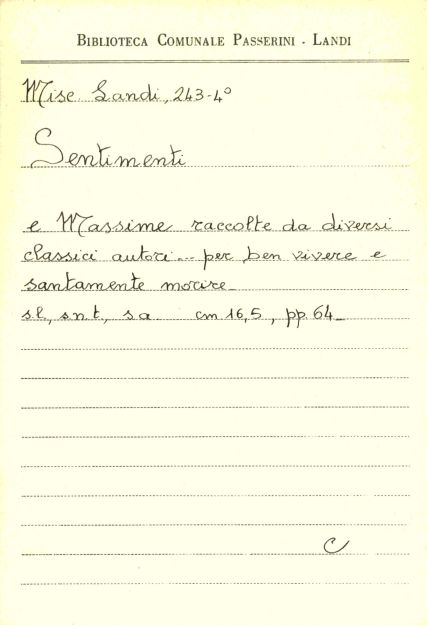 BIBLIOTECA COMUNALE PASSERINI - LANDI
Misc. Landi, 243-4°
Sentimenti
e Massime raccolte da diversi
classici autori... per ben vivere e
santamente morire_
s.l., s.n.t., s.a. cm 16,5, pp. 64_
C